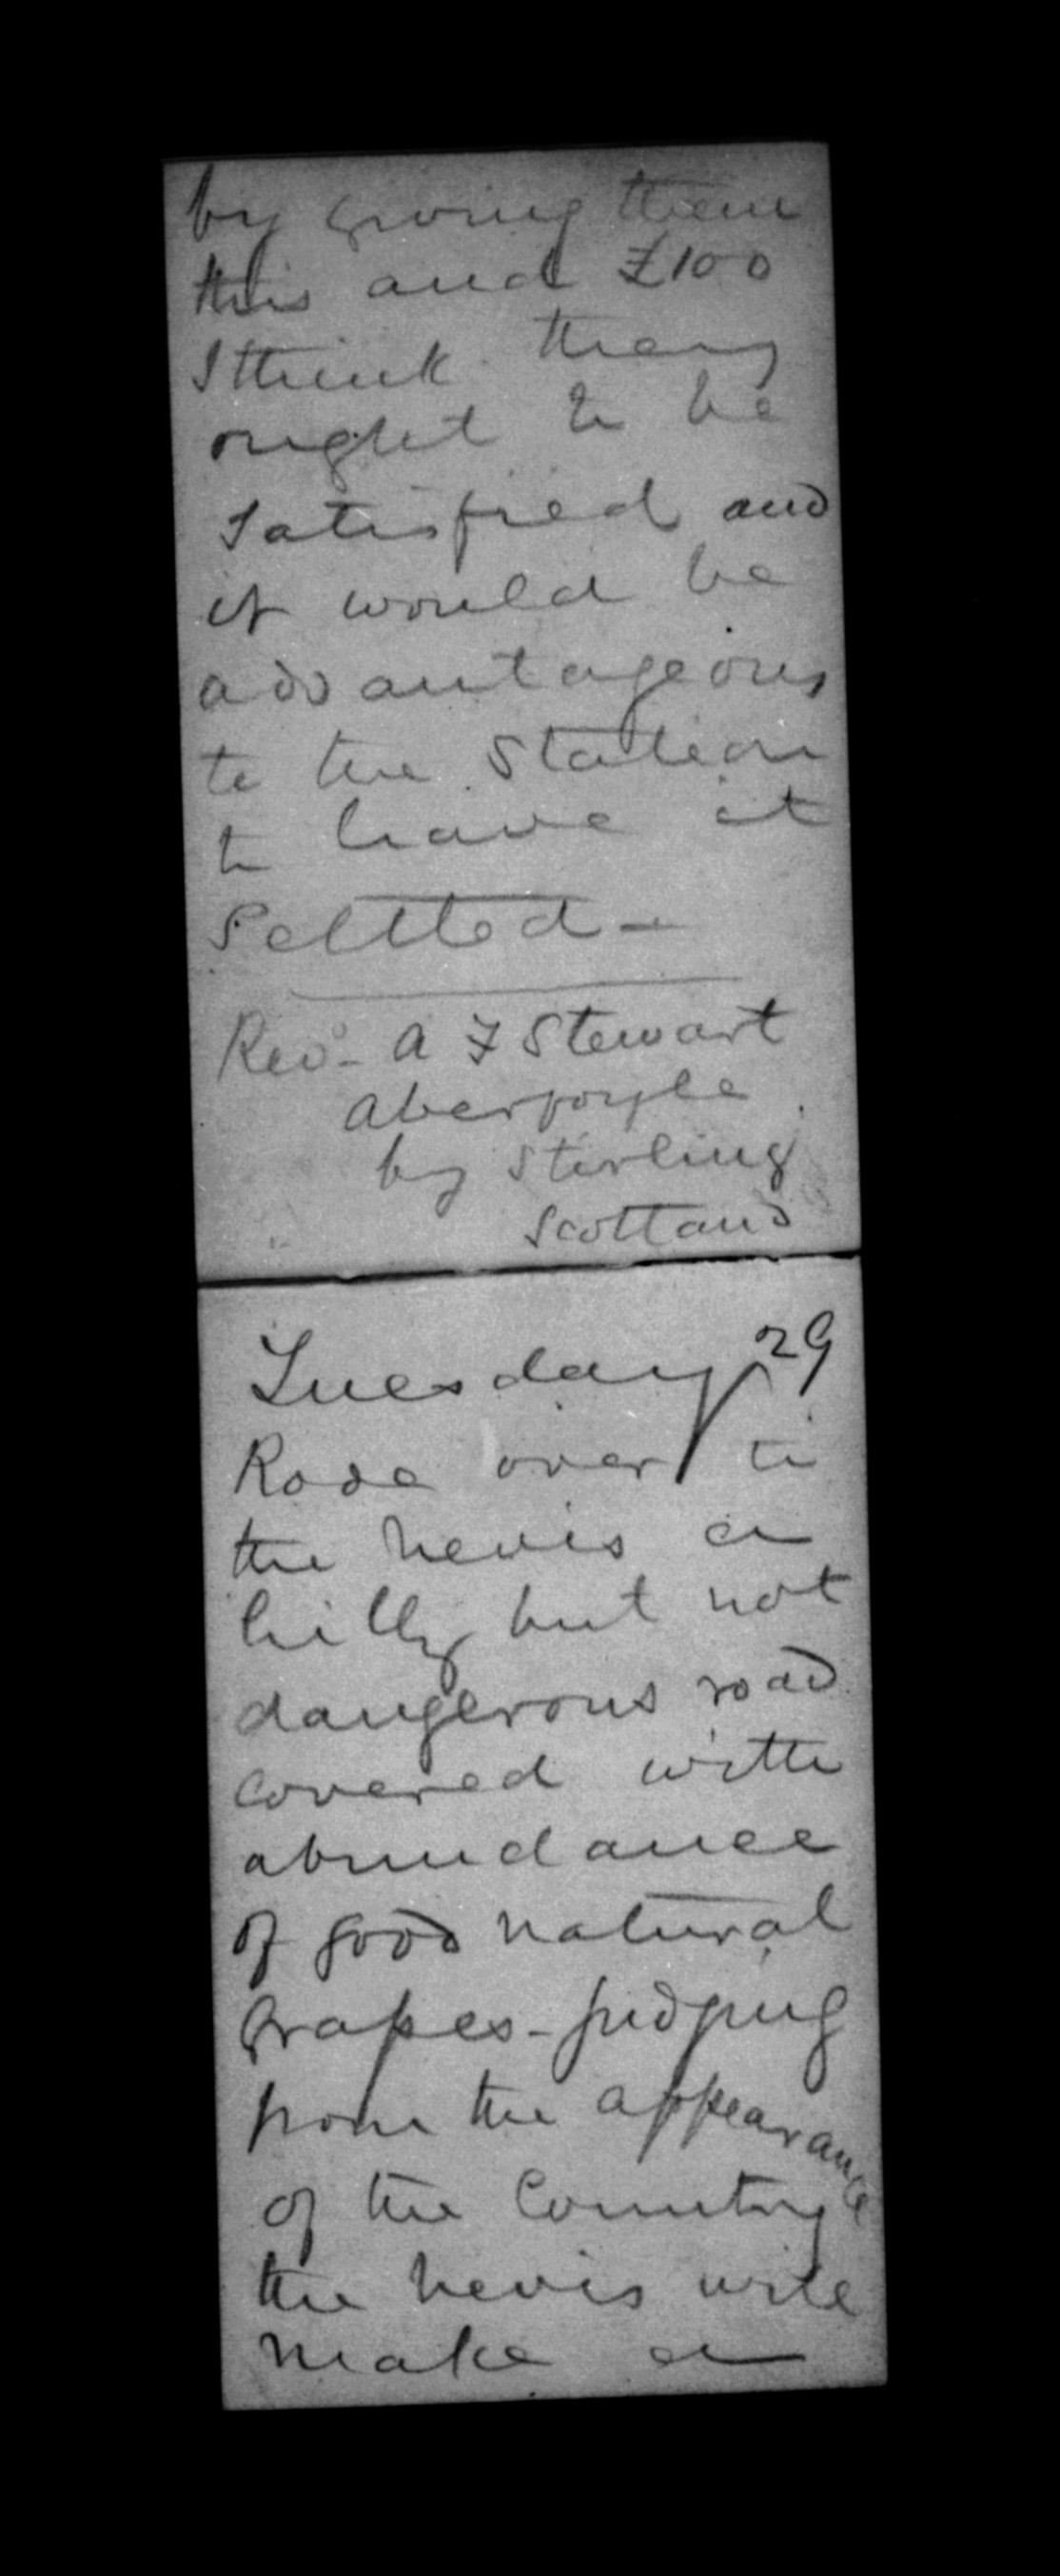 by giving them
this and £100
I think they
ought to be
satisfied and
it would be
advantageous
to the Station
to have it
Settled -
Revd. A F Stewart
Aberfoyle
by Stirling
Scotland
Tuesday 29
Rode over to
the Nevis a
hilly but not
dangerous road
covered with
abundance
of good natural
Grapes - judging
from the appearance
of the Country
the Nevis will
make a